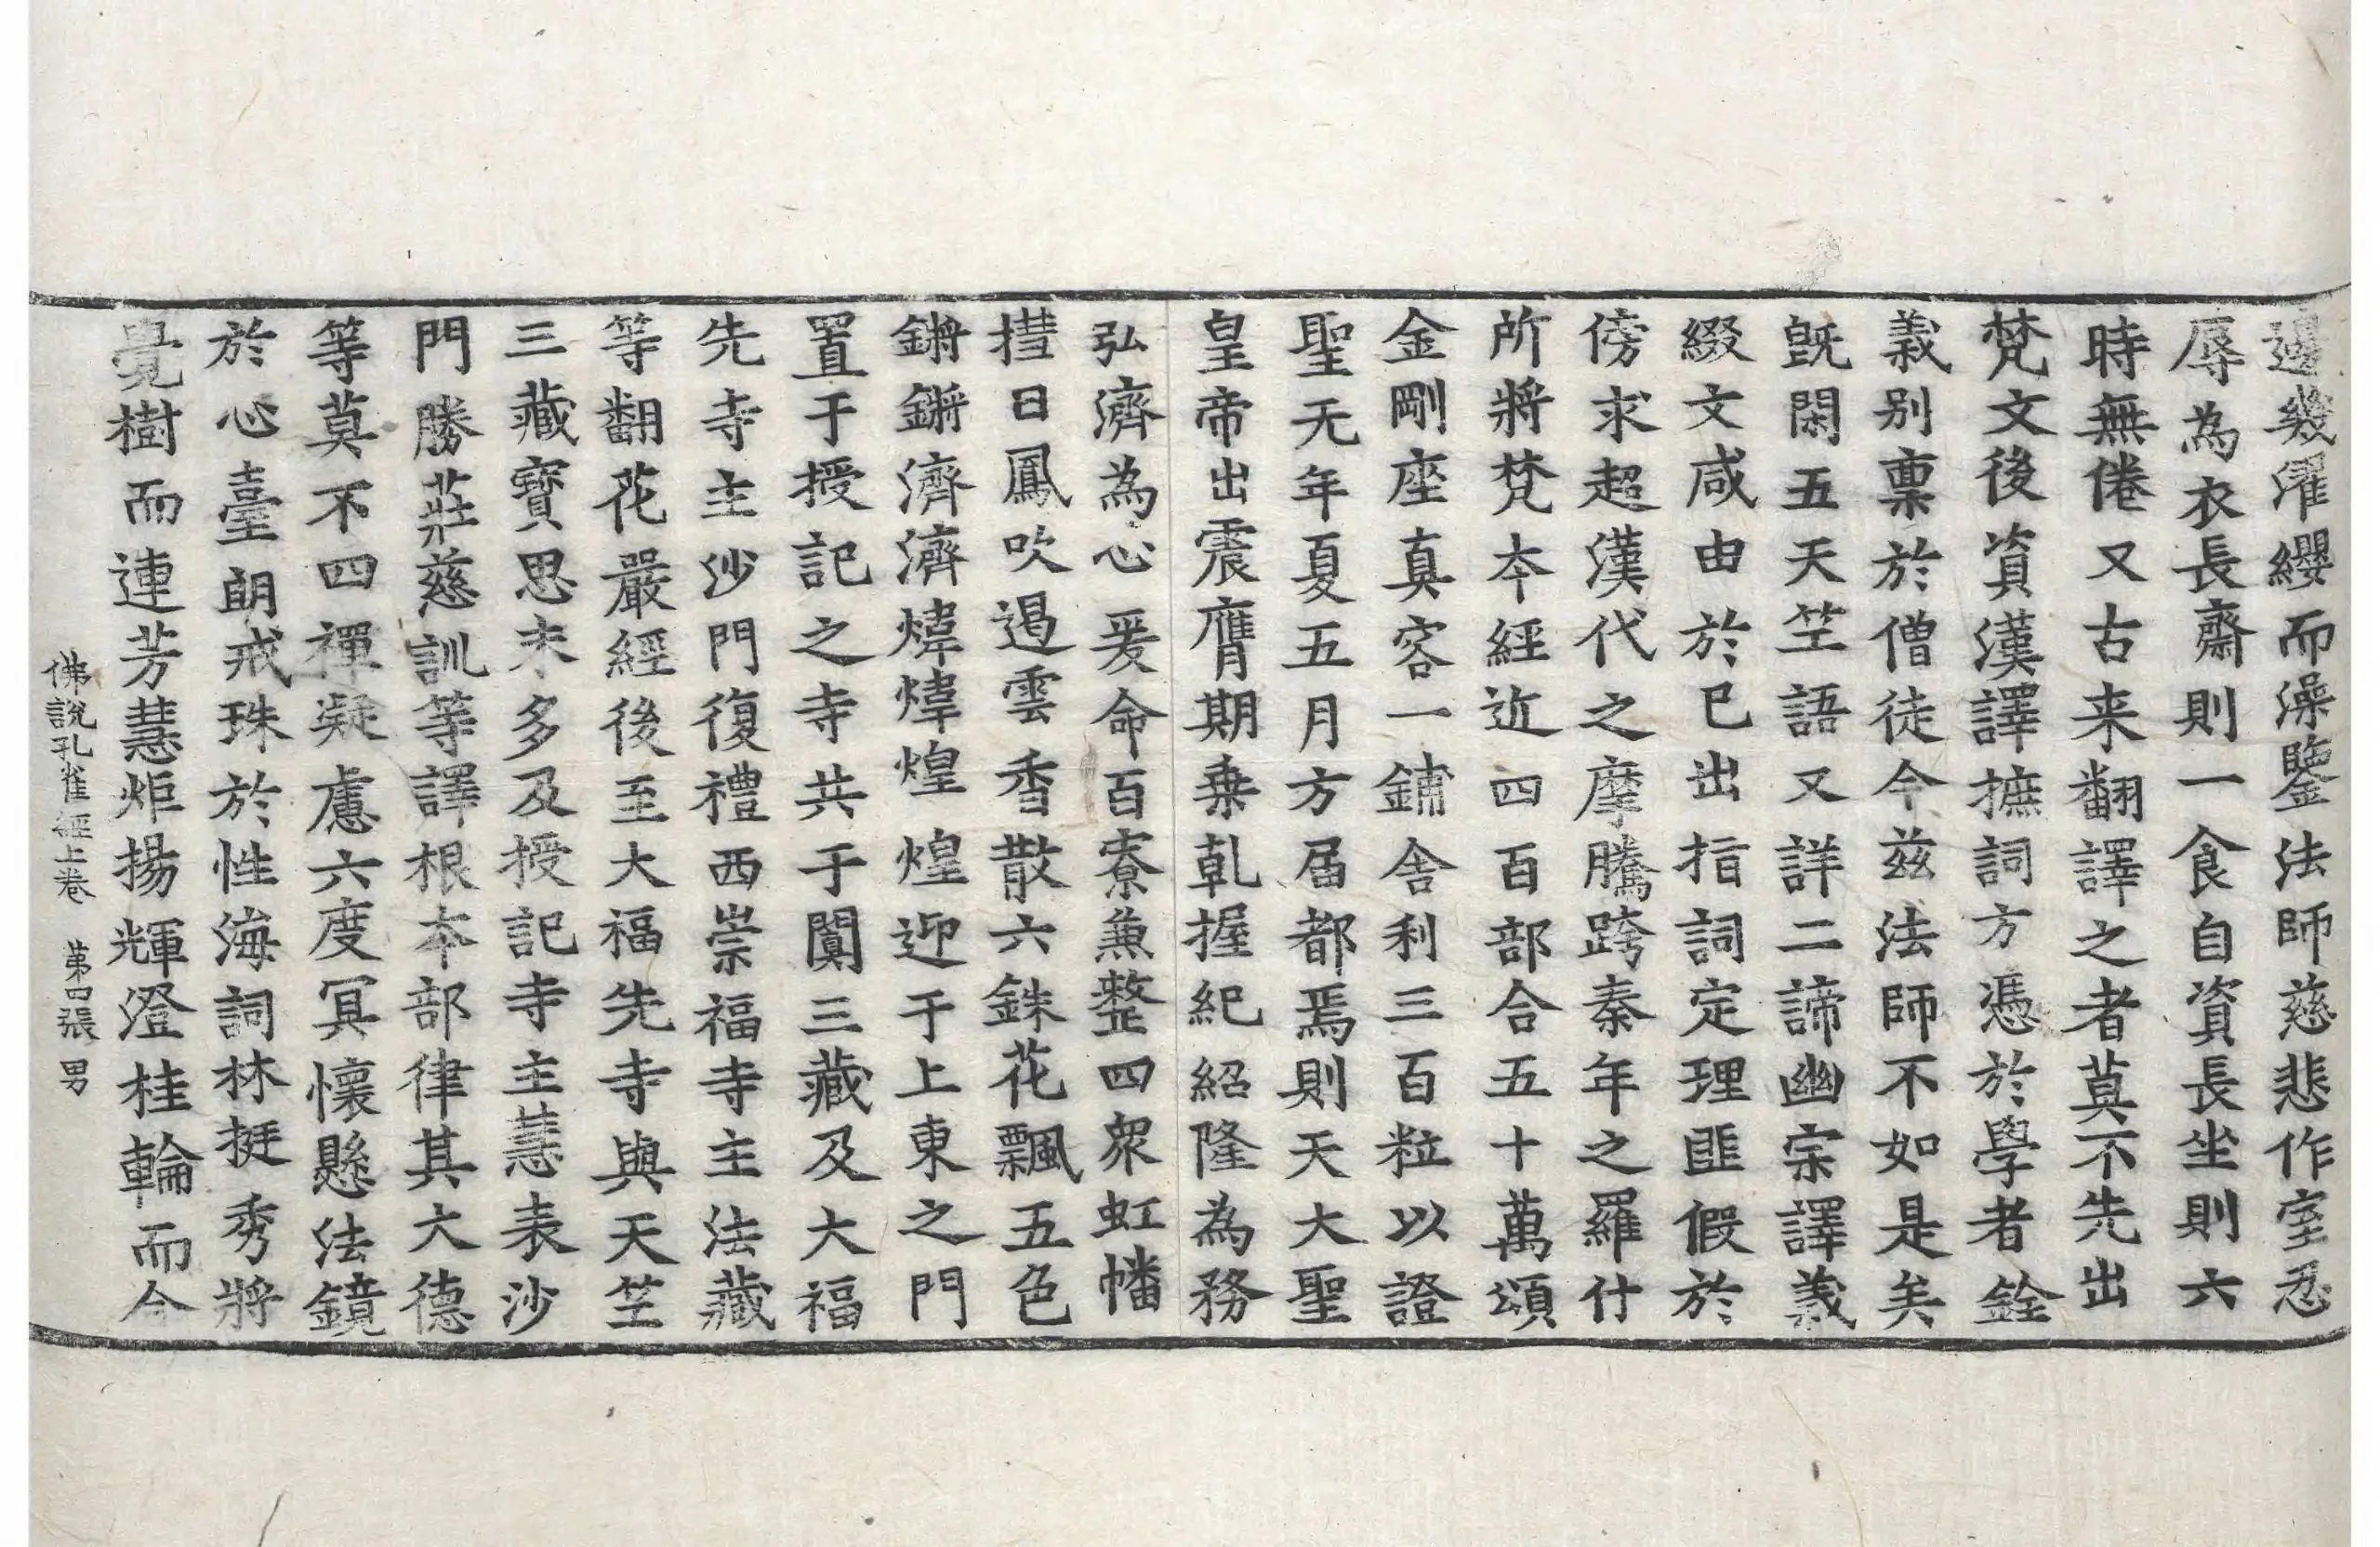 邊幾濯纓而澡鑒法師慈悲作室忍
辱為衣長齋則一食自資長坐則六
時無倦又古来翻譯之者莫不先出
梵文後資漢譯摭詞方憑於學者銓
義別稟於僧徒今玆法師不如是矣
旣閑五天竺語又詳二諦幽宗譯義
綴文咸由於已出指詞定理匪假於
傍求超漢代之摩騰跨秦年之羅什
所將梵夲經近四百部合五十萬頌
金剛座真容一鋪舎利三百粒以證
聖无年夏五月方届都焉則天大聖
皇帝出震膺期乗乹握紀紹隆為務
弘濟為心爰命百寮兼整四衆虹幡
㨗日鳳吹遏雲香散六銖花飄五色
鏘鏘濟濟煒煒煌煌迎于上東之門
置于授記之寺共于闐三藏及大福
先寺主沙門復禮西崇福寺主法藏
等翻花嚴經後至大福先寺與天竺
三藏寶思末多及授記寺主慧表沙
門勝莊慈訓等譯根夲部律其大德
等莫不四禪凝慮六度冥懷懸法鏡
於心臺朗戒珠於性海詞林挺秀將
覺樹而連芳慧炬揚輝澄桂輪而合
佛說孔雀經上卷 苐四張 男